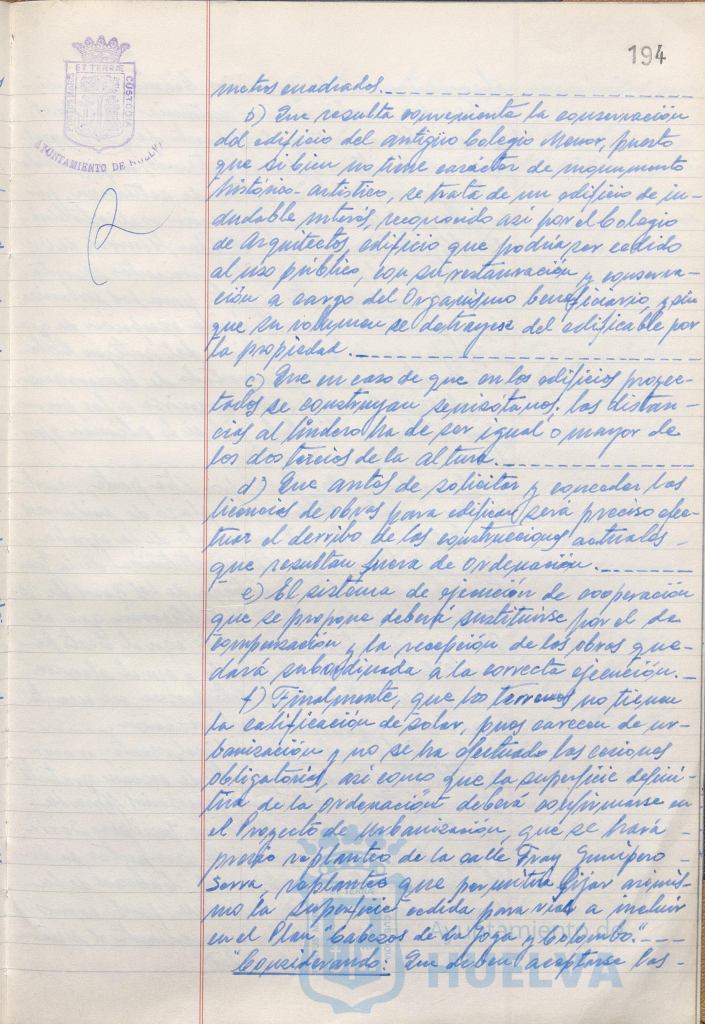 194
ET TERRAE
CUSTODIA
AYUNTAMIENTO DE HUELVA
metros cuadrados.
b) Que resulta conveniente la conservación
del edificio del antigüo Colegio Menor, puesto
que si bien no tiene carácter de monumento
histórico-artístico, se trata de un edificio de in-
dudable interés, reconocido así por el Colegio
de Arquitectos, edificio que podría ser cedido
al uso público, con su restauración y conserva-
ción a cargo del Organismo beneficiario, y sin
que su volumen se detrayese del edificable por
la propiedad.
c) Que en caso de que en los edificios proyec-
tados se construyan semisótanos, las distan-
cias al lindero ha de ser igual o mayor de
los dos tercios de la altura.
d) Que antes de solicitar y conceder las
licencias de obras para edificar será preciso efec-
tuar el derribo de las construcciones actuales
que resultan fuera de ordenación.
e) El sistema de ejecución de cooperación
que se propone deberá sustituirse por el de
compensación y la recepción de las obras que-
dará subordinada a la correcta ejecución.
f) Finalmente, que los terrenos no tienen
la calificación de solar, pues carecen de ur-
banización y no se ha efectuado las cesiones
obligatorias, así como que la superficie defini-
tiva de la ordenación deberá confirmarse en
el Proyecto de Urbanización, que se hará
previo replanteo de la calle Fray Junípero
Serra, replanteo que permitirá fijar asimis-
mo la superficie cedida para vial a incluir
en el Plan "Cabezos de la Joya y Colombo."
"Considerando: Que deben aceptarse las-
Ayuntamiento de
HUELVA